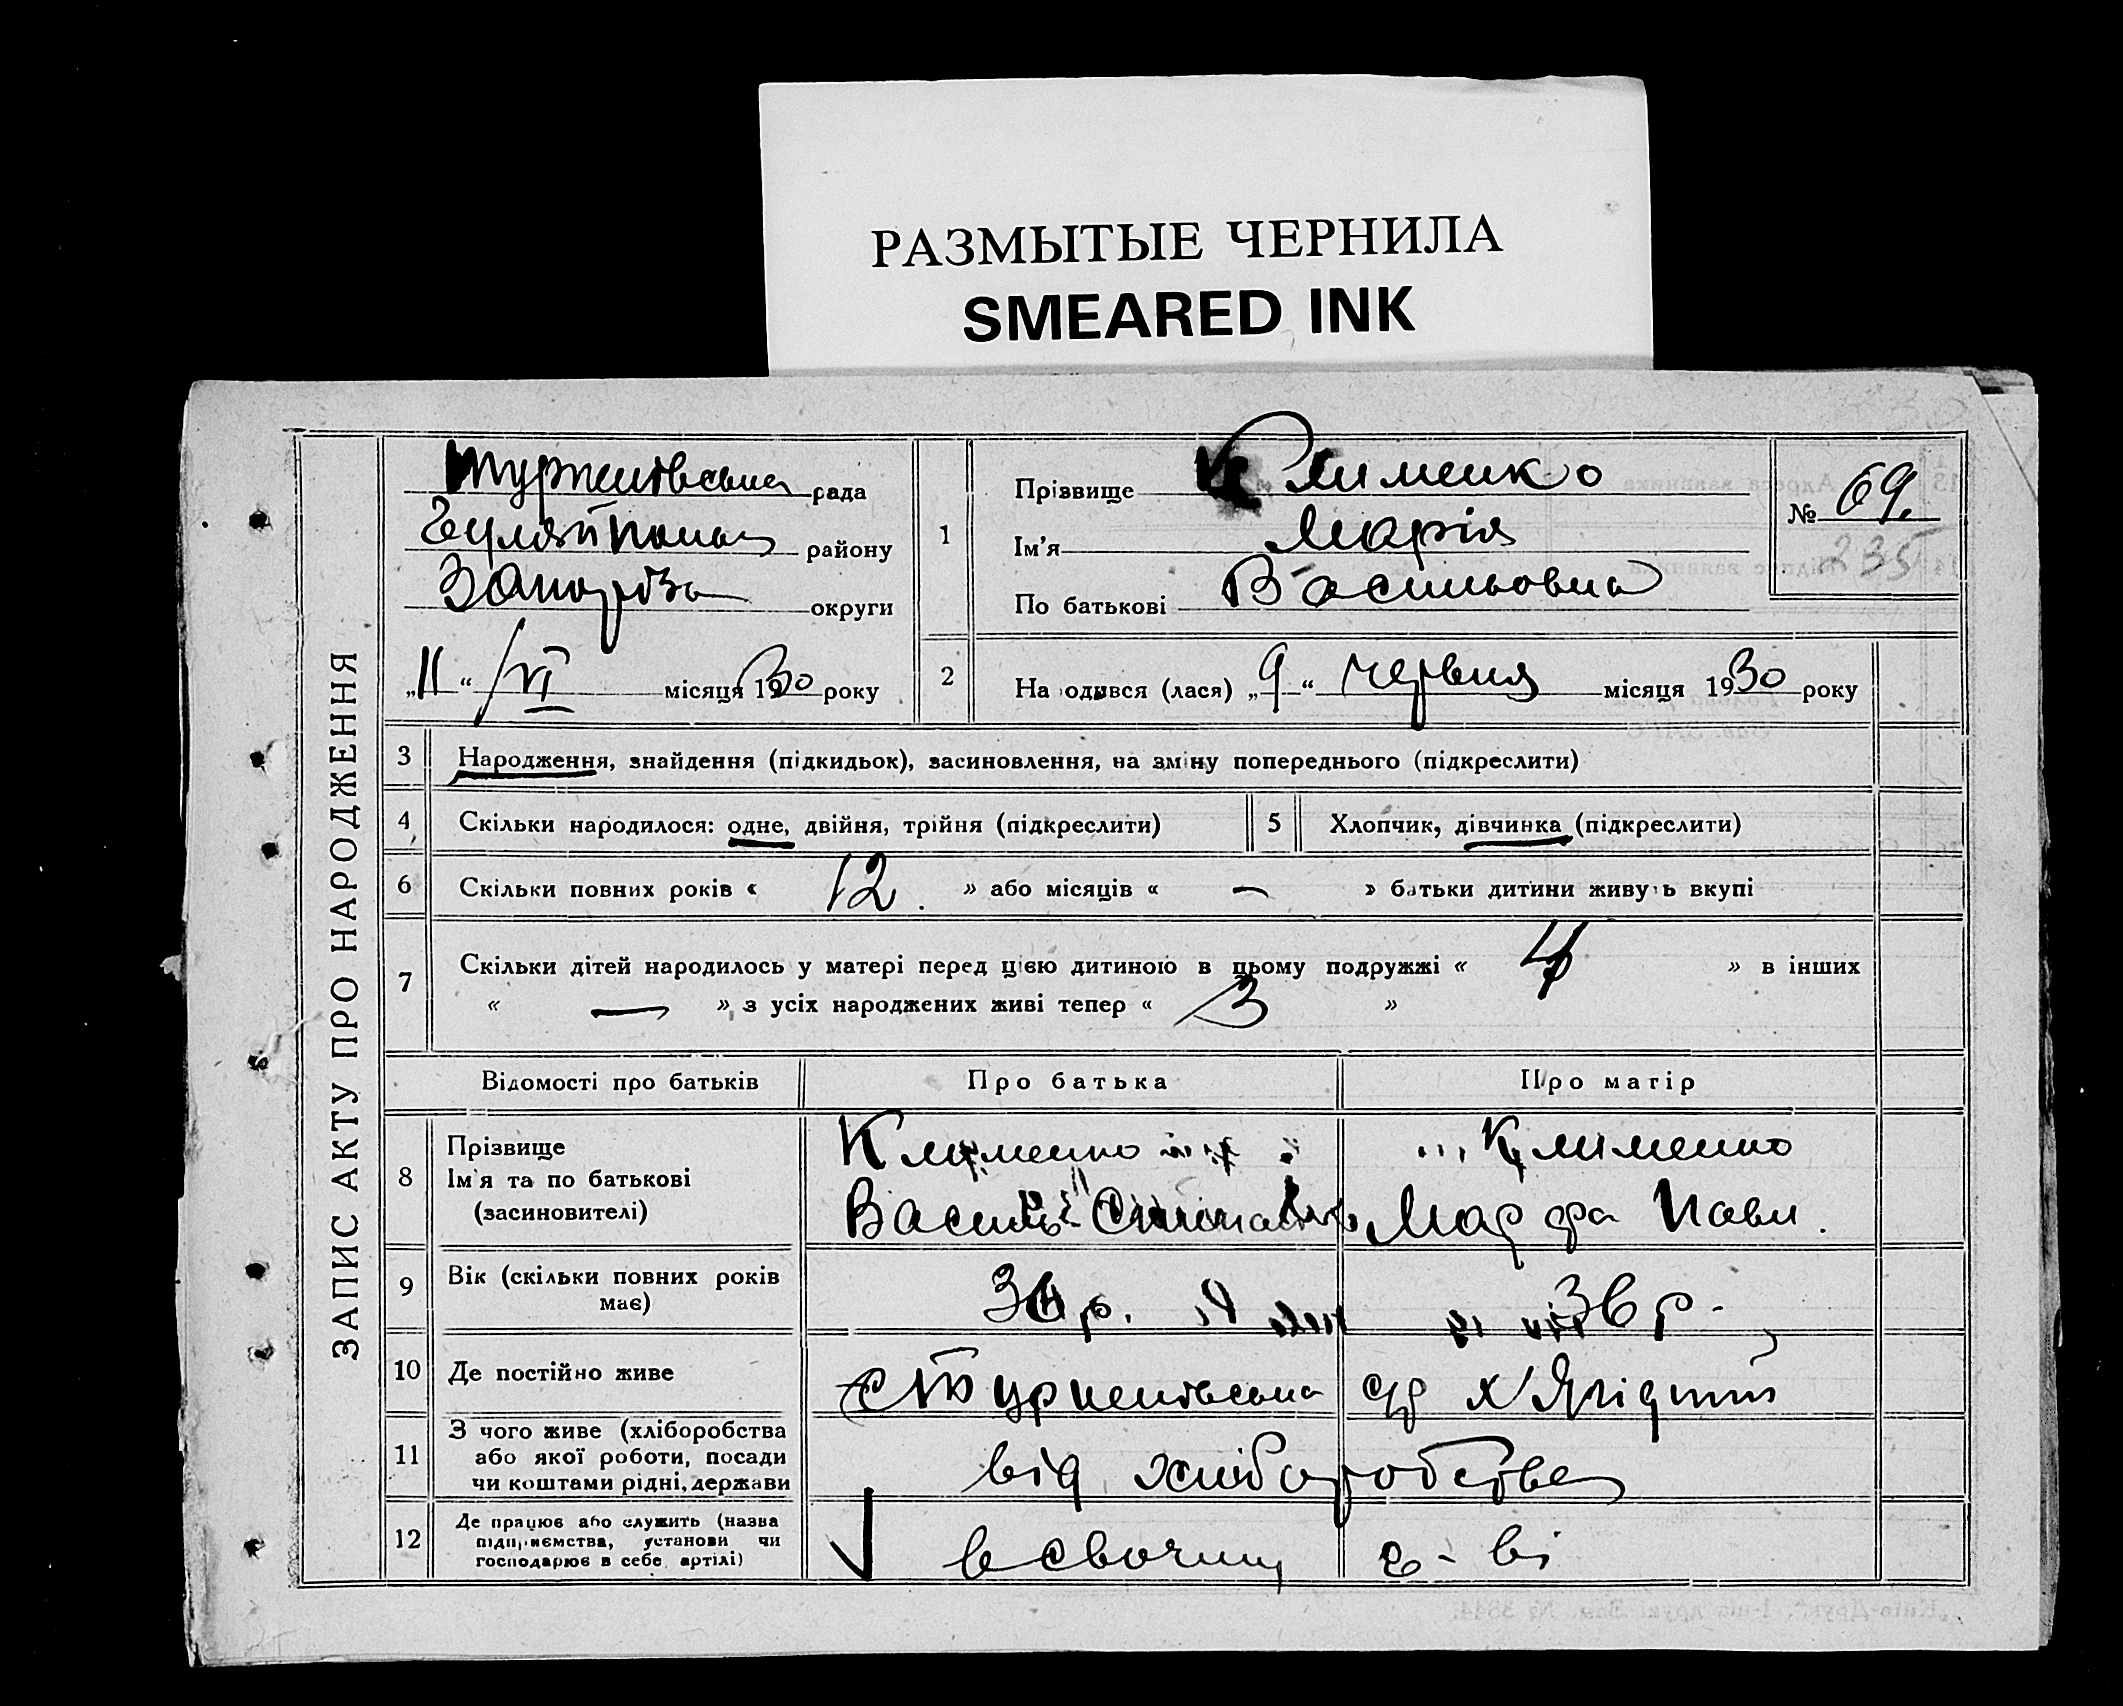 РАЗМЫТЫЕ ЧЕРНИЛА
SMEARED INK
ЗАПИС АКТУ ПРО НАРОДЖЕННЯ
рада
району
округи
„11“ /VI місяця 1930 року
1
Прізвище Клименко
Ім'я Марія
По батькові Васильовна
№ 69.
235
2
Народився (лася) „9“ червня місяця 1930 року
3 Народження, знайдення (підкидьок), засиновлення, на зміну попереднього (підкреслити)
4 Скільки народилося: одне, двійня, трійня (підкреслити)
5 Хлопчик, дівчинка (підкреслити)
6 Скільки повних років « 12. » або місяців « — » батьки дитини живуть вкупі
7 Скільки дітей народилось у матері перед цією дитиною в цьому подружжі « 4 » в інших
« — » з усіх народжених живі тепер « 3 »
Відомості про батьків Про батька Про матір
8 Прізвище
Ім'я та по батькові
(засиновителі)
Клименко Клименко
Василь Марфа Павл.
9 Вік (скільки повних років
має)
36 р.
10 Де постійно живе
11 З чого живе (хліборобства
або якої роботи, посади
чи коштами рідні, держави
від хліборобства
12 Де працює або служить (назва
підприємства, установи чи
господарює в себе, артілі)
в своєму г-ві